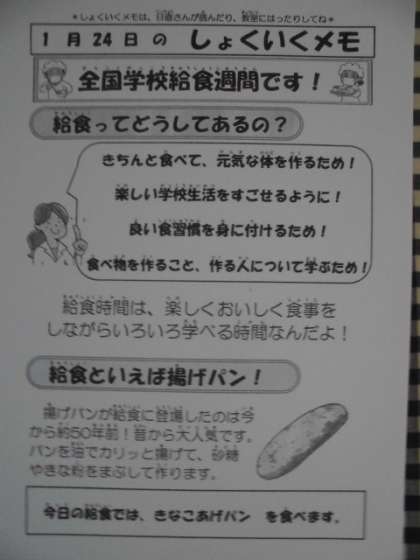 ＊しょくいくメモは、日直さんが読んだり、教室にはったりしてね＊
1月24日の しょくいくメモ
全国学校給食週間です！
給食ってどうしてあるの？
きちんと食べて、元気な体を作るため！
楽しい学校生活をすごせるように！
良い食習慣を身に付けるため！
食べ物を作ること、作る人について学ぶため！
給食時間は、楽しくおいしく食事を
しながらいろいろ学べる時間なんだよ！
給食といえば揚げパン！
揚げパンが給食に登場したのは今
から約50年前！昔から大人気です。
パンを油でカリッと揚げて、砂糖
やきな粉をまぶして作ります。
今日の給食では、きなこあげパン を食べます。